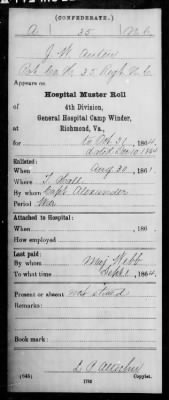 (CONFEDERATE.)
A 35 N.C.
J. W. Austin
Pvt Co. H, 35 Regt. N.C.
Appears on
Hospital Muster Roll
of
4th Division,
General Hospital Camp Winder,
at Richmond, Va.,
for to Oct 31, 1864.
dated Dec 10 1864
Enlisted:
When Aug 30, 186
Where
By whom Capt Alexander
Period War
Attached to Hospital:
When , 186 .
How employed
Last paid:
By whom Maj Webb
To what time Sept 1, 1864.
Present or absent not stated
Remarks:
Book mark:
(645) Copyist.